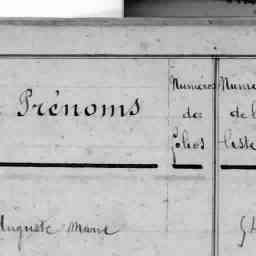 Prénoms
Numéros
des
folios
Numé
de l
liste
Auguste Marie